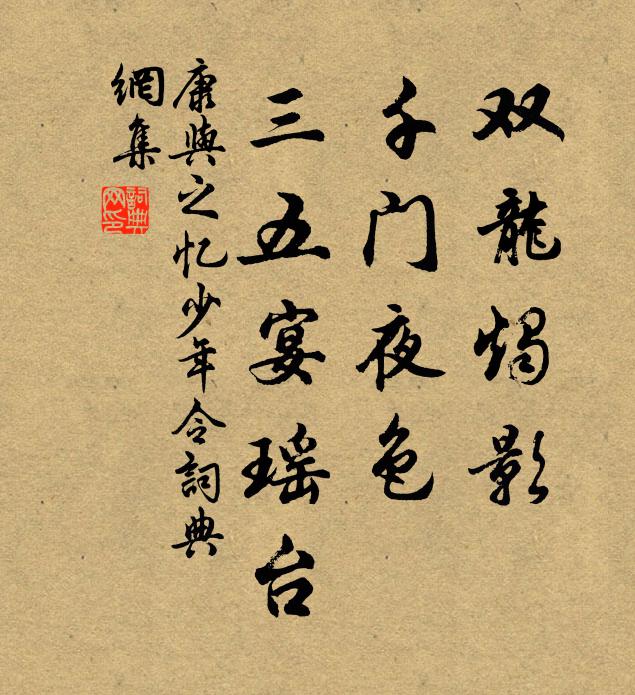 双龍燭影
千门夜色
三五宴瑶台
康與之忆少年令詞典
網集
詞典
网印